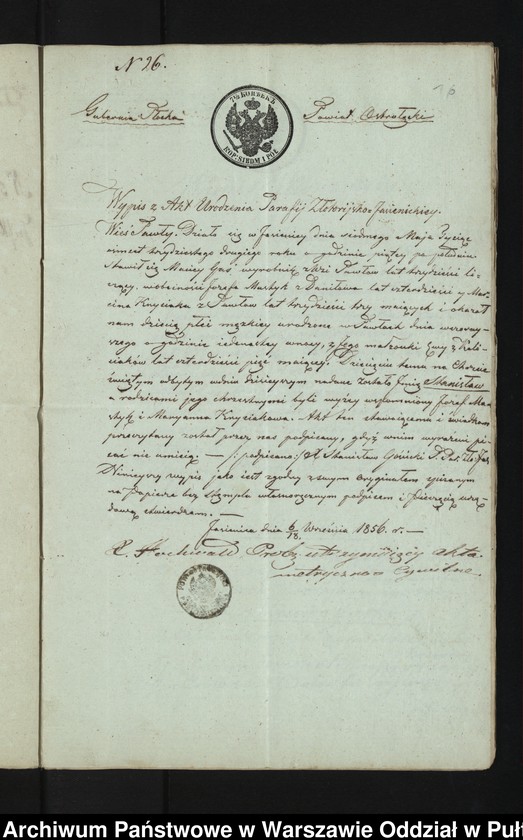 N 96.
16
7½ КОПѢЕКЪ
KOP. SREBR. I POŁ
Gubernia Płocka
Powiat Ostrołęcki
Wypis z Akt Urodzenia Parafij Złotorijsko Jasienickiey.
Wieś Pawły. Działo się w Jasienicy dnia siodmego Maja Tysiąc
ośmset trzydziestego drugiego roku o godzinie piątey po południu
Stawił się Maciey Gas wyrobnik z Wsi Pawłów lat trzydzieści li-
czący, w obecności Jozefa Martyk z Daniłowa lat czterdzieści y Mar-
cina Kryciaka z Pawłów lat trzydzieści trzy maiących i okazał
nam dziecię płci męzkiey urodzone w Pawłach dnia wczoray-
szego o godzinie iedenastey w nocy, z Jego małżonki
lat czterdzieści pięć maiącey. Dziecięciu temu na Chrzcie
świętym odbytym w dniu dzisieyszym nadane zostało Imię Stanisław
a rodzicami jego chrzestnymi byli wyżey wspomniony Jozef Mar-
tyk i Maryanna Kryciakowa. Akt ten stawaiącemu i świadkom
przeczytany został przez nas podpisany, gdyż w nim wyrażeni pi-
sać nie umieią. — /: podpisano:/ X Stanisław
Ninieyszy wypis jako jest zgodny z swym oryginałem spisanym
na Papierze bez Stempla własnoręcznym podpisem i pieczęcią urzę-
dową stwierdzam. —
Jasienica dnia 6/18. Września 1856. r. —
X. Hochwald Prob. utrzymujący akta
metryczno cywilne.
Archiwum Państwowe w Warszawie Oddział w Puł